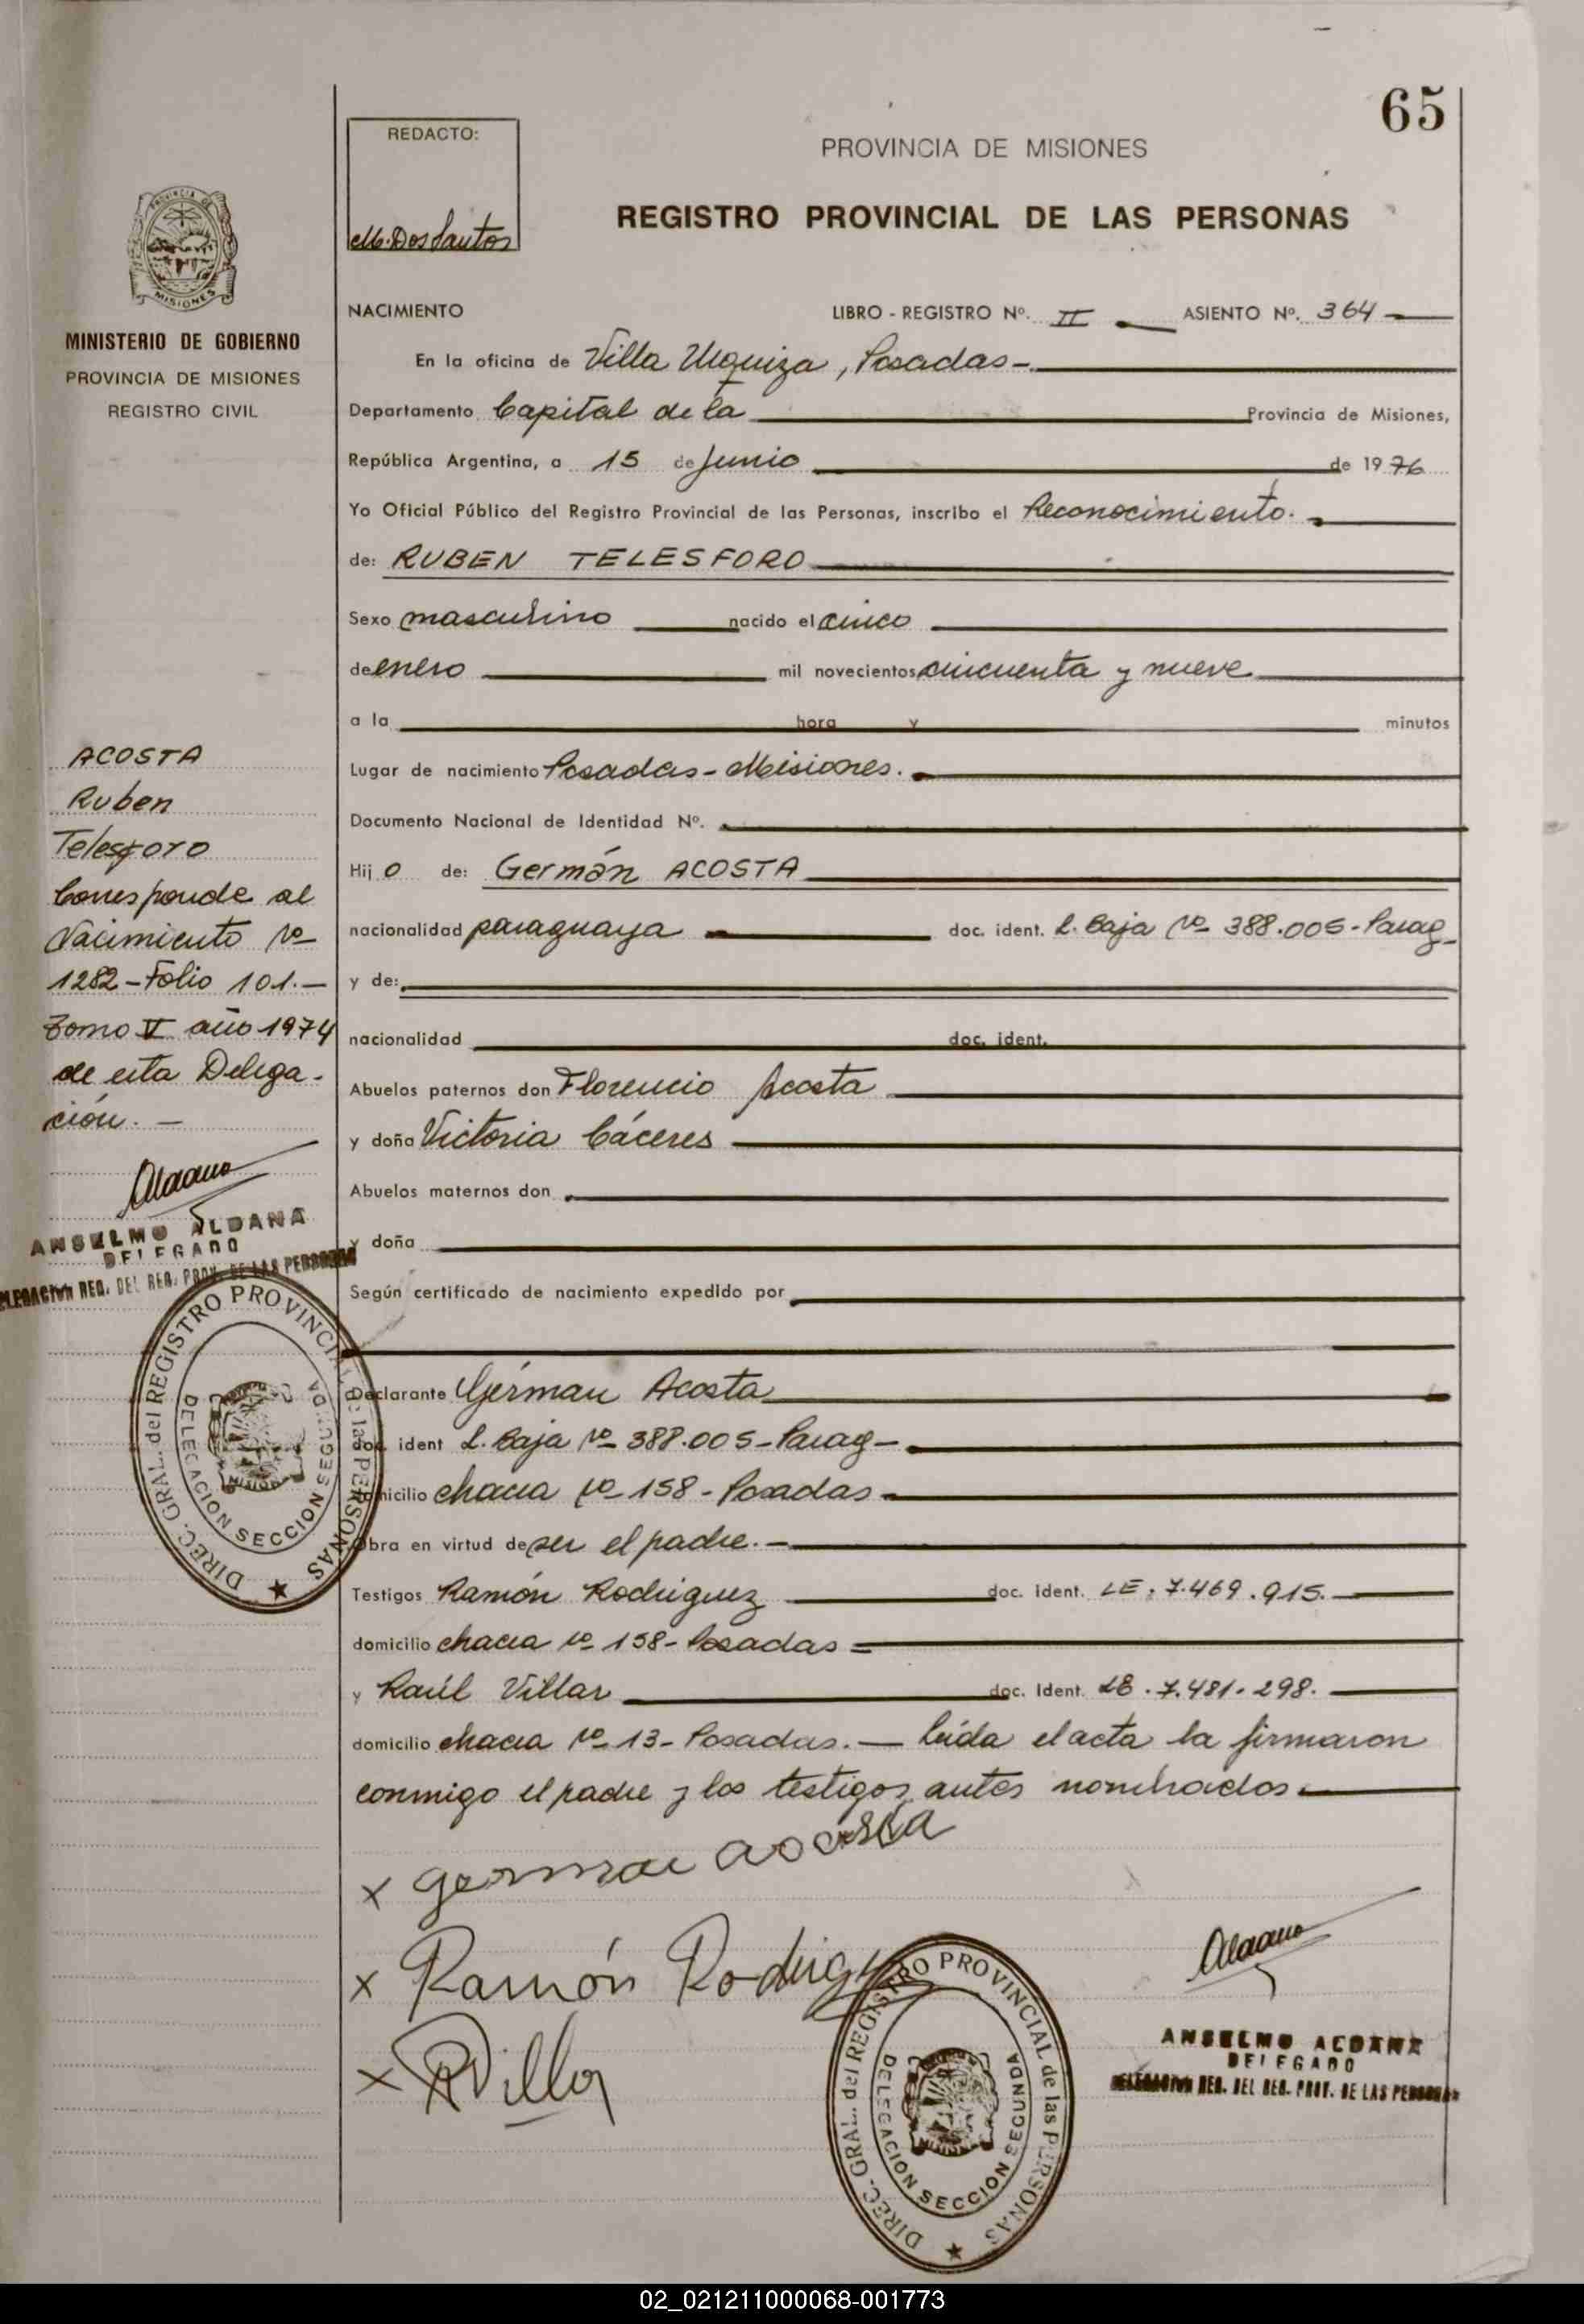 65
REDACTO:
M. Dos Santos
PROVINCIA DE MISIONES
REGISTRO PROVINCIAL DE LAS PERSONAS
PROVINCIA DE
MISIONES
MINISTERIO DE GOBIERNO
PROVINCIA DE MISIONES
REGISTRO CIVIL
NACIMIENTO LIBRO - REGISTRO Nº. II ASIENTO Nº. 364
En la oficina de Villa Urquiza, Posadas
Departamento Capital de la Provincia de Misiones,
República Argentina, a 15 de Junio de 1976
Yo Oficial Público del Registro Provincial de las Personas, inscribo el Reconocimiento.
de: RUBEN TELESFORO
Sexo masculino nacido el cinco
de enero mil novecientos cincuenta y nueve
a la hora y minutos
Lugar de nacimiento Posadas - Misiones.
Documento Nacional de Identidad Nº.
Hijo de: Germán ACOSTA
nacionalidad paraguaya doc. ident. L. Baja Nº 388.005 - Parag
y de:
nacionalidad doc. ident.
Abuelos paternos don Florencio Acosta
y doña Victoria Cáceres
Abuelos maternos don
y doña
Según certificado de nacimiento expedido por
Declarante Gérman Acosta
doc. ident L. Baja Nº 388.005 - Parag -
domicilio chacra Nº 158 - Posadas
Obra en virtud de ser el padre. -
Testigos Ramón Rodriguez doc. ident. LE. 7.469.915.
domicilio chacra Nº 158 - Posadas
y Raúl Villar doc. Ident. LE. 7.481.298.
domicilio chacra Nº 13 - Posadas. — Leída el acta la firmaron
conmigo el padre y los testigos antes nombrados
ACOSTA
Ruben
Telesforo
Corresponde al
Nacimiento Nº
1282 - Folio 101. -
Tomo V año 1974
de esta Delega-
ción. -
Aldana
ANSELMO ALDANA
DELEGADO
DELEGACION REG. DEL REG. PROV. DE LAS PERSONAS
DIREC. GRAL. del REGISTRO PROVINCIAL de las PERSONAS
DELEGACION SECCION SEGUNDA
MISIONES
x german acosta
x Ramón Rodriguez
x RVillar
DIREC. GRAL. del REGISTRO PROVINCIAL de las PERSONAS
DELEGACION SECCION SEGUNDA
MISIONES
Aldana
ANSELMO ALDANA
DELEGADO
DELEGACION REG. DEL REG. PROV. DE LAS PERSONAS
02_021211000068-001773